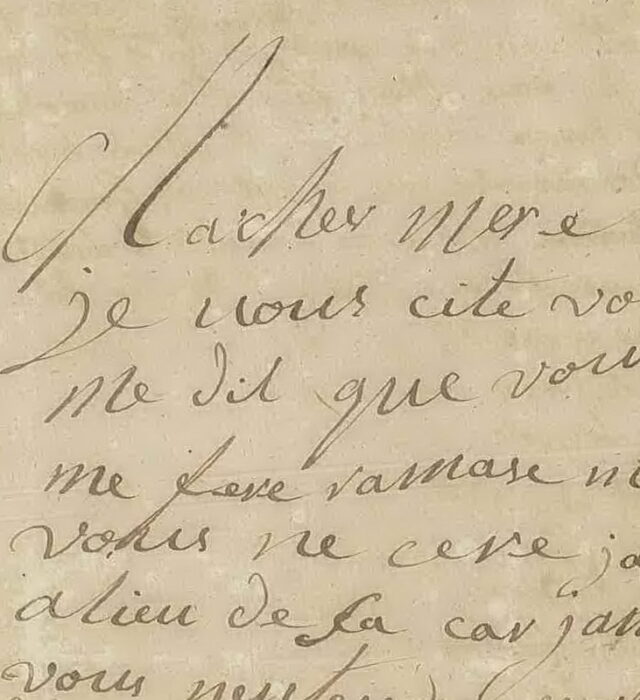 Macher mere
je vous cite vo
me dit que vous
me fere ramase
vous ne cere ja
alieu de sa car jan
vous